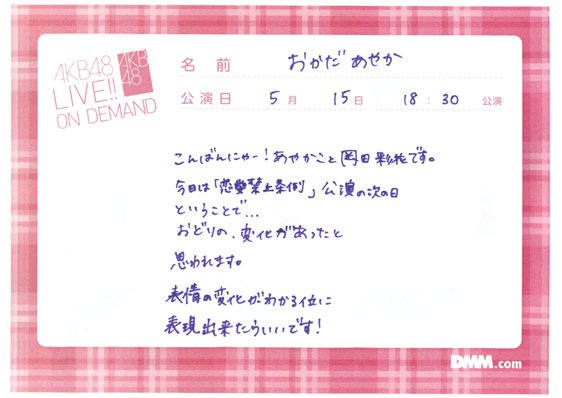 AKB48
LIVE!!
ON DEMAND
AKB
48
名前 おかだ あやか
公演日 5月 15日 18:30 公演
こんばんにゃー!あやかこと岡田彩花です。
今日は「恋愛禁止条例」公演の次の日
ということで...
おどりの、変化があったと
思われます。
表情の変化がわかる位に
表現出来たらいいです!
DMM.com